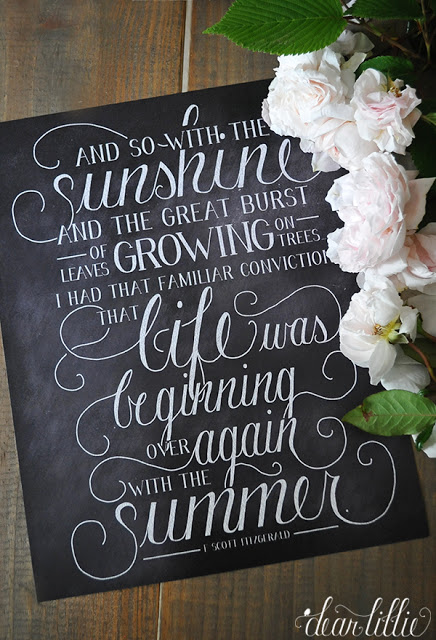 AND SO WITH THE
sunshine
AND THE GREAT BURST
OF LEAVES GROWING ON TREES
I HAD THAT FAMILIAR CONVICTION
THAT life was
beginning
OVER again
WITH THE
summer
F SCOTT FITZGERALD
dear lillie